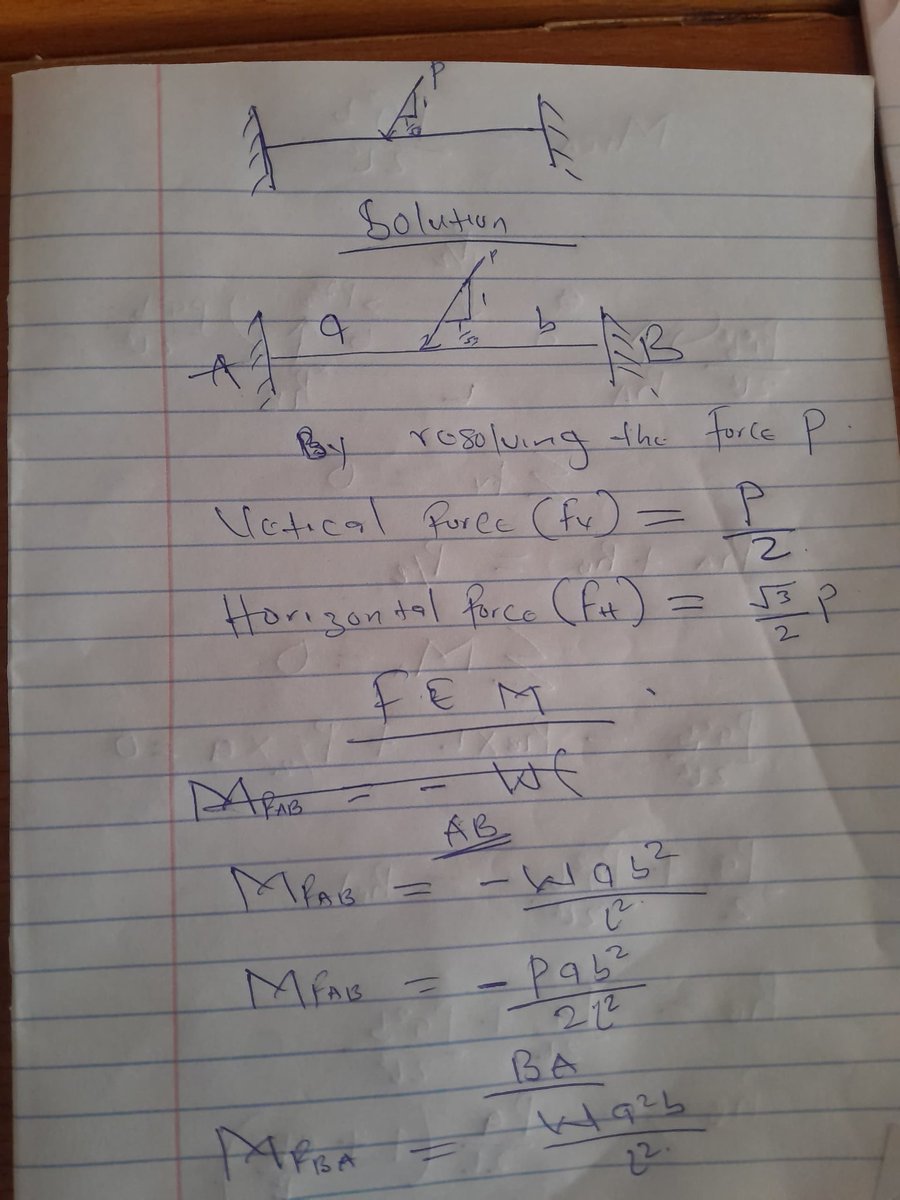 P
1
√3
Solution
P
1
√3
a
b
A
B
By resolving the force P.
Vetical force (fv) = P/2
Horizontal force (fH) = √3/2 P
F E M
MFAB = - W
AB
MFAB = - Wab²/l²
MFAB = - Pab²/2l²
BA
MFBA = Wa²b/l²